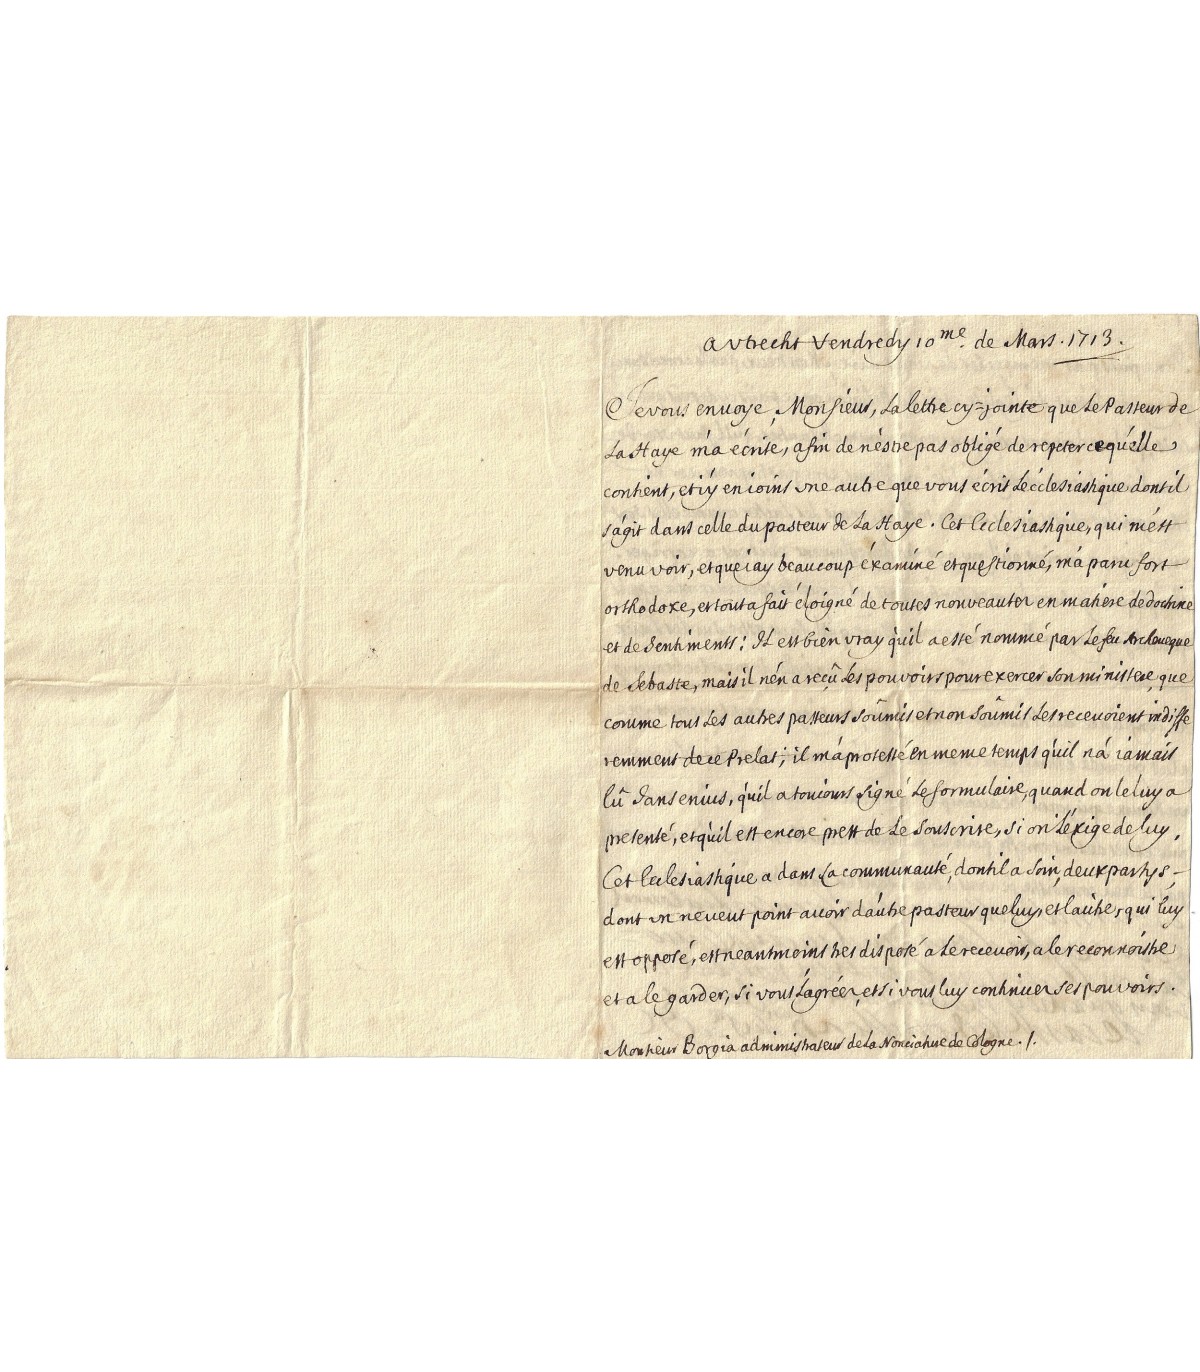 a Vtrecht Vendredy 10.me de Mars. 1713.
Je vous envoye, Monsieur, la lettre cy=jointe que Le Pasteur de
La Haye m'a écrite, afin de n'éstre pas obligé de repeter ce qu'elle
contient, et i'y en ioins vne autre que vous écrit L'écclesiastique dont il
s'ágit dans celle du pasteur de La Haye. Cet Ecclesiastique, qui m'ést
venu voir, et que i'ay beaucoup éxaminé et questionné, m'á paru fort
orthodoxe, et tout a fait éloigné de toutes nouveautez en matiere de doctrine
et de Sentiments: Il est bien vray qu'il a esté nommé par Le feu Archeueque
de Sebaste, mais il n'én a reçû Les pouvoirs pour exercer son ministere, que
comme tous Les autres pasteurs soûmis et non soûmis Les recevoient indiffe
remment de ce Prelat; il m'á protesté en meme temps qu'il n'á iamais
lû Jansenius, qu'il a touiours signé Le formulaire, quand on le luy a
presenté, et qu'il est encore prest de Le Souscrire, si on L'éxige de luy.
Cet Ecclesiastique a dans La communauté, dont il a soin, deux partys,
dont vn ne veut point avoir d'áutre pasteur que luy, et l'autre, qui luy
est opposé, est neantmoins tres disposé a Le recevoir, a le reconnoistre
et a le garder, si vous L'ágréez, et si vous luy continuez ses pouvoirs.
Monsieur Borgia administrateur de La Nonciature de Cologne./.